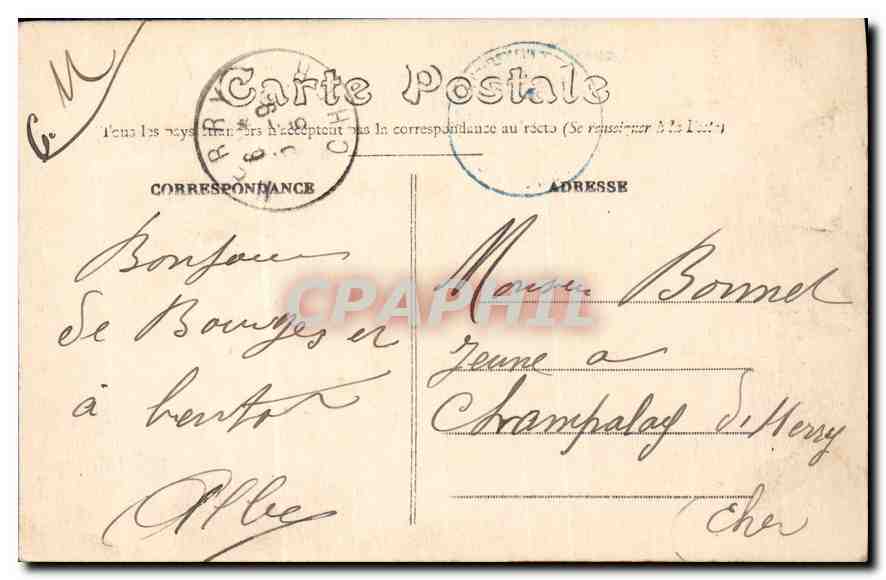 G. M
Carte Postale
Tous les pays étrangers n'acceptent pas la correspondance au recto (Se renseigner à la Poste)
CORRESPONDANCE
ADRESSE
Bonjour
de Bourges et
à bentot
Albe
Monsieur Bonnet
Jeune a
Champalay d'Herry
Cher
CPAPHIL